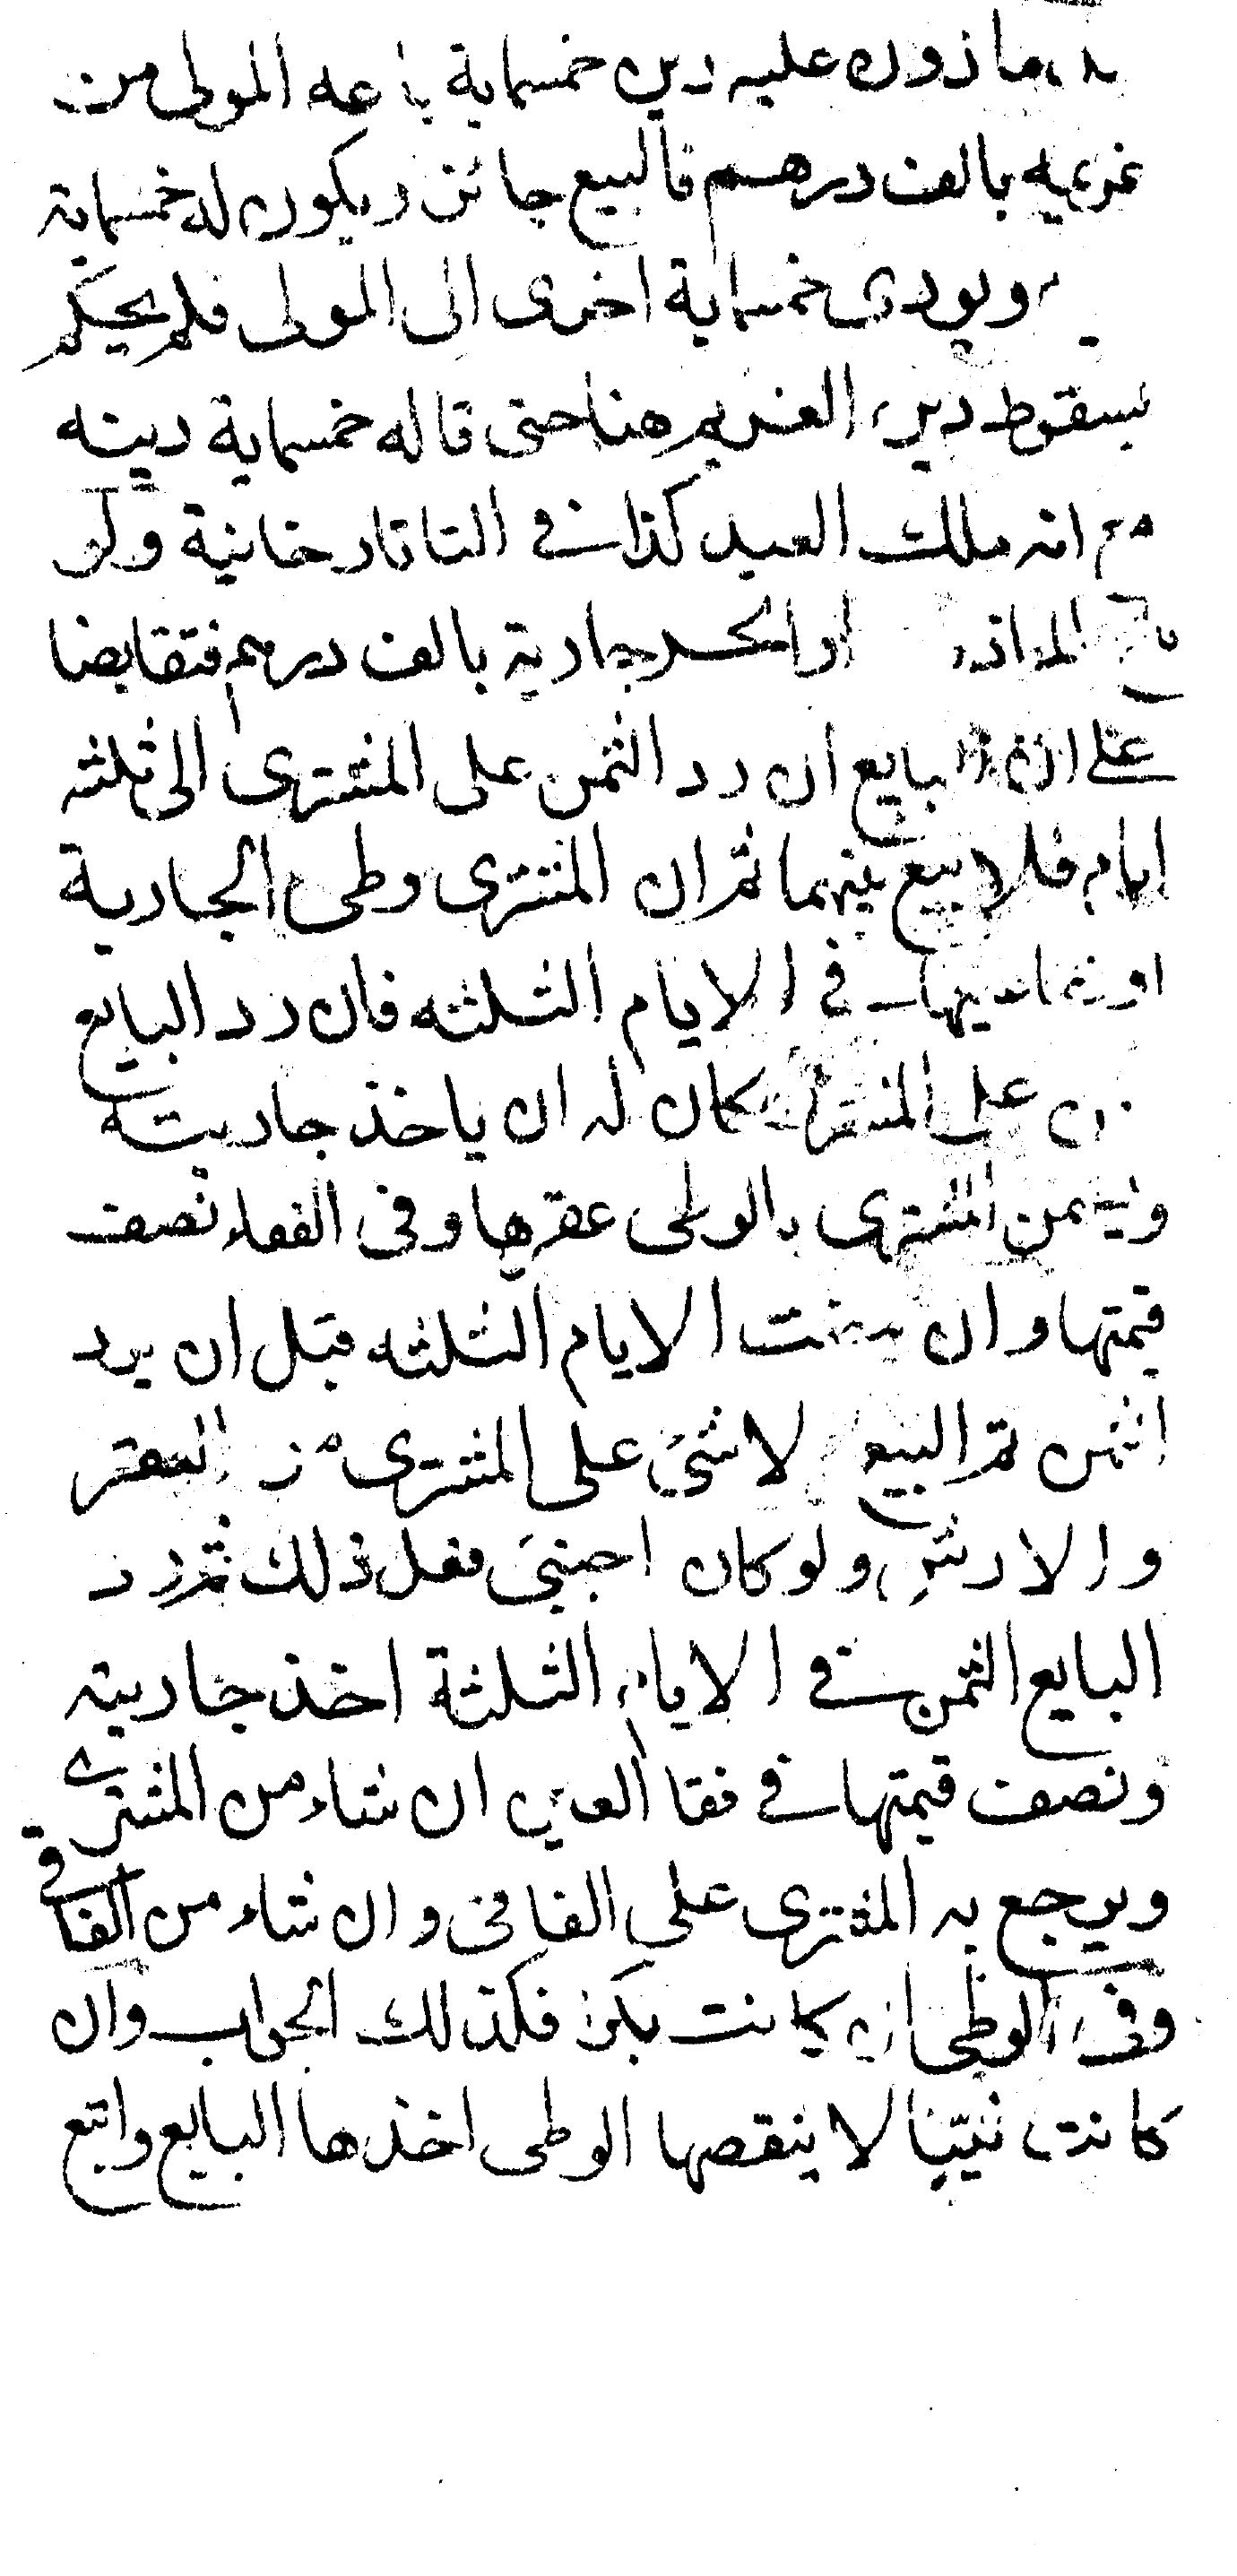 ماذون عليه دين خمسماية باعه المولى من
غريمه بالف درهم فالبيع جائز ويكون له خمسماية
ويودى خمسماية اخرى الى المولى فلم يحكم
بسقوط دين الغريم هنا حتى قال له خمسماية دينه
مع انه ملك العبد كذا في التاتارخانية ولو
باع الماذون او الحر جارية بالف درهم فتقابضا
على ان البايع ان رد الثمن على المشترى الى ثلثه
ايام فلا بيع بينهما ثم ان المشترى وطى الجارية
او في الايام الثلثه فان رد البايع
على المشترى كان له ان ياخذ جاريته
ويضمن المشترى بالوطى عقرها وفى الفقاء نصف
قيمتها وان مضت الايام الثلثه قبل ان يرد
الثمن تم البيع لا شئ على المشترى من العقر
والارش ولو كان اجنبى فعل ذلك ثم رد
البايع الثمن في الايام الثلثة اخذ جاريته
ونصف قيمتها في فقا العين ان شاء من المشترى
ويرجع به المشترى على الفاقى وان شاء من الفاقى
وفى الوطى ان كانت بكرا فكذلك الجواب وان
كانت ثيبا لا ينقصها الوطى اخذها البايع واتبع